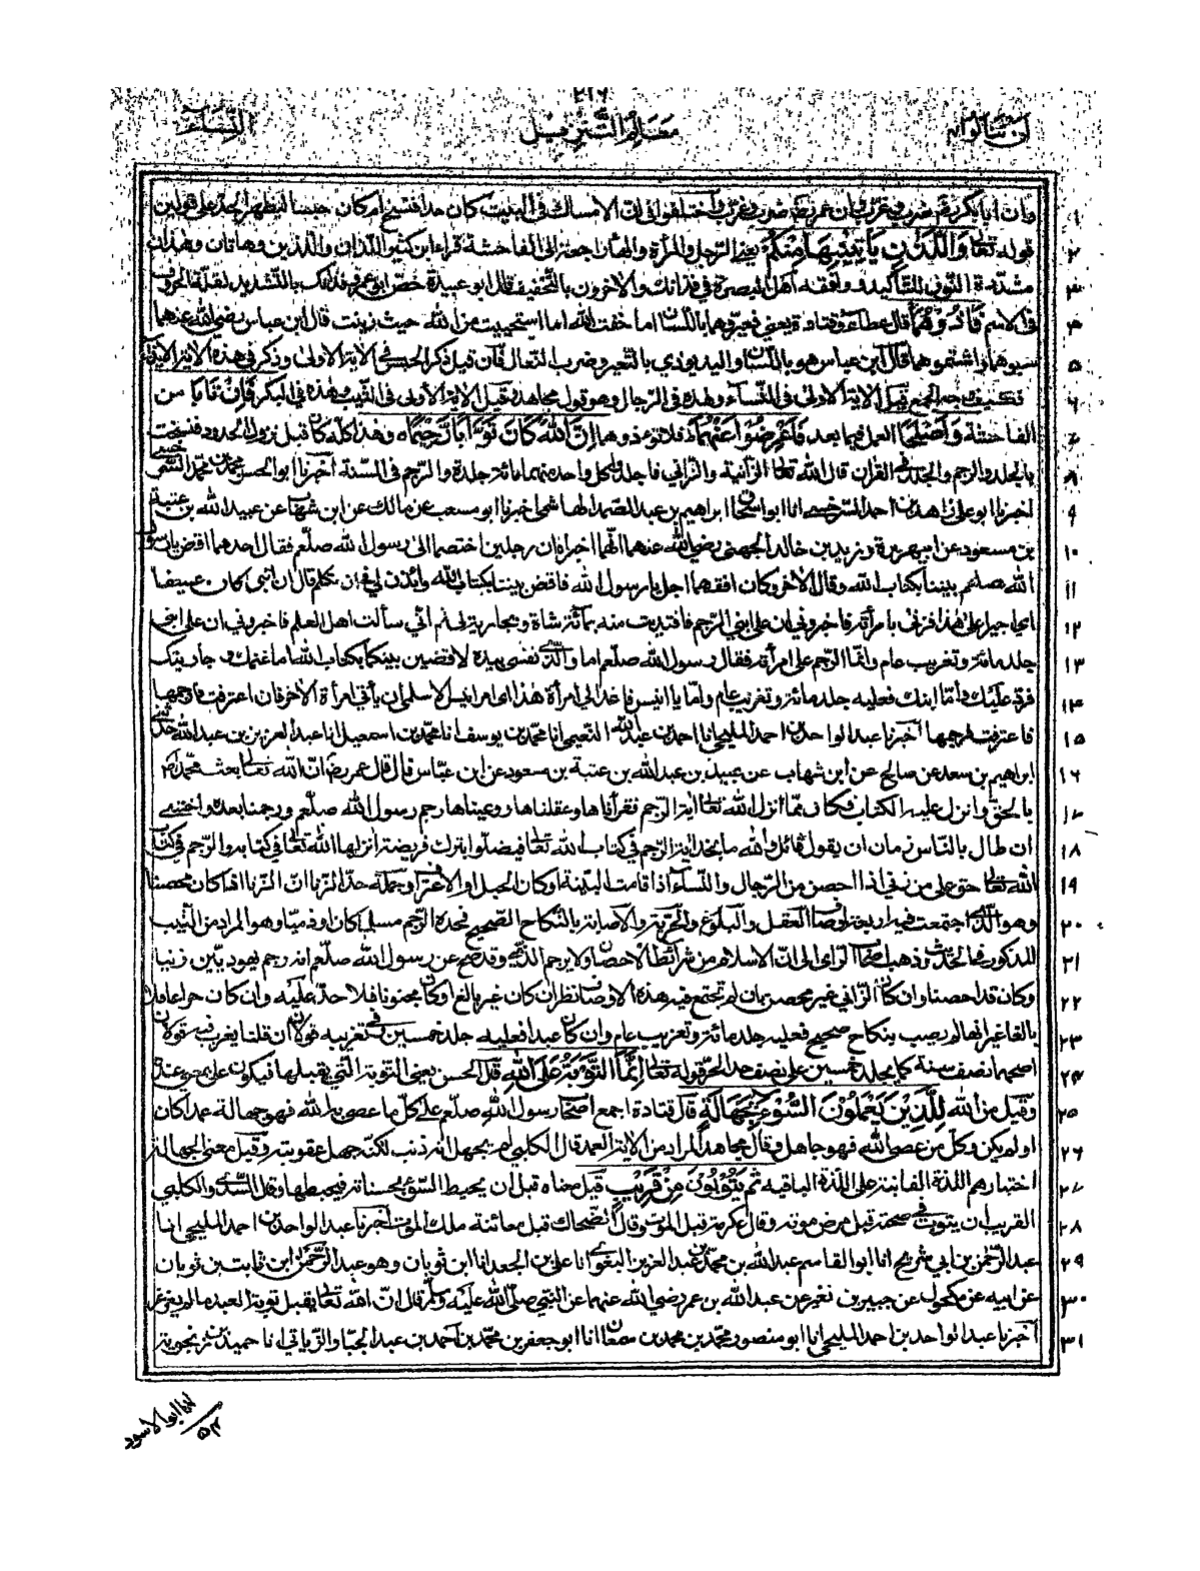 ٢١٦
لن تنالوا٤ معالم التنزيل النساء
وان ابابكر رضـ ضرب وغرّب وان عمر رضـ ضرب وغرّب واختلفوا فى ان الامساك فى البيت كان حدا فنسخ ام كان حبسا ليظهر الحد على قولين
قوله تعالى وَالَّذٰنِ يَاْتِيٰنِهَا مِنْكُمْ يعنى الرجل والمرأة والهاء راجعة الى الفاحشة قراء ابن كثير اللذان واللذين وهاتان وهذان
مشددة النون للتأكيد ووافقه اهل البصرة فى فذانك والاخرون بالتخفيف قال ابو عبيدة خص ابو عمرو فذانك بالتشديد لقلة الحروف
فى الاسم فَاٰذُوْهُمَا قال عطاء وقتادة يعنى فعيروهما باللسان اما خفت الله اما استحييت من الله حيث زنيت قال ابن عباس رضي الله عنهما
سبوهما واشتموهما قال ابن عباس هو باللسان واليد يوذي بالتعيير وضرب النعال فان قيل ذكر الحبس فى الاية الاولى وذكر فى هذه الاية الايذاء
فكيف وجه الجمع قيل الاية الاولى فى النساء وهذه فى الرجال وهو قول مجاهد وقيل الاية الأولى فى الثيب وهذه فى البكر فَاِنْ تَابَا من
الفاحشة وَاَصْلَحَا العمل فيما بعد فَاَعْرِضُوْا عَنْهُمَا فلا توذوهما اِنَّ اللهَ كَانَ تَوَّابًا رَّحِيْمًا وهذا كله كان قبل نزول الحدود فنسخت
بالجلد والرجم والجلد فى القران قال الله تعالى الزانية والزاني فاجلدوا كل واحد منهما مائة جلدة والرجم فى السنة اخبرنا ابو الحسن محمد بن محمد السرخسي
اخبرنا ابو على زاهد بن احمد السرخسي انا ابو اسحاق ابراهيم بن عبد الصمد الهاشمي اخبرنا ابو مصعب عن مالك عن ابن شهاب عن عبيد الله بن عتبة
بن مسعود عن ابي هريرة وزيد بن خالد الجهني رضي الله عنهما انهما اخبراه ان رجلين اختصما الى رسول الله صلعم فقال احدهما اقض يا رسول
الله صلعم بيننا بكتاب الله وقال الاخر وكان افقههما اجل يا رسول الله فاقض بيننا بكتاب الله وائذن لي فى ان تكلم قال ان ابنى كان عسيفا
اي اجيرا على هذا فزنى بامرأته فاخبروني ان على ابني الرجم فافتديت منه بمائة شاة وبجارية لي ثم اني سألت اهل العلم فاخبروني ان على ابنى
جلد مائة وتغريب عام وانما الرجم على امرأته فقال رسول الله صلعم اما والذي نفسي بيده لاقضين بينكما بكتاب الله اما غنمك وجاريتك
فرد عليك وأما ابنك فعليه جلد مائة وتغريب عام واما يا انيس فاغد الى امرأة هذا اى امر انيس الاسلمى ان يأتى امرأة الاخر فان اعترفت فارجمها
فاعترفت فرجمها اخبرنا عبد الواحد بن احمد المليحي انا احمد بن عبد الله النعيمي انا محمد بن يوسف انا محمد بن اسمعيل انا عبد العزيز بن عبد الله حدثني
ابراهيم بن سعد عن صالح عن ابن شهاب عن عبيد بن عبد الله بن عتبة بن مسعود عن ابن عباس قال قال عمر رضـ ان الله تعالى بعث محمدا صـ
بالحق وانزل عليه الكتاب فكان مما أنزل الله تعالى اية الرجم فقرأناها وعقلناها ووعيناها رجم رسول الله صلعم ورجمنا بعده واخشى
ان طال بالناس زمان ان يقول قائل والله ما نجد اية الرجم فى كتاب الله تعالى فيضلوا بترك فريضة أنزلها الله تعالى فى كتابه والرجم فى كتاب
الله تعالى حق على من زنى اذا احصن من الرجال والنساء اذا قامت البينة او كان الحبل او الاعتراف وجملة حد الزنا ان الزنا اذا كان محصنا
وهو الذي اجتمعت فيه اربعة اوصاف العقل والبلوغ والحرية والاصابة بالنكاح الصحيح فحده الرجم مسلما كان او ذميا وهو المراد من الثيب
المذكور فى الحديث وذهب اصحاب الراى الى ان الاسلام من شرائط الاحصان ولا يرجم الذمي وقد صح عن رسول الله صلعم انه رجم يهوديين زنيا
وكان قد احصنا وان كان الزاني غير محصن بان لم تجتمع فيه هذه الاوصاف نظر ان كان غير بالغ او كان مجنونا فلا حد عليه وان كان حرا عاقلا
بالغا غير انه لم يصب بنكاح صحيح فعليه جلد مائة وتغريب عام وان كان عبدا فعليه جلد خمسين وفى تغريبه قولان ان قلنا يغرب فيه قولان
اصحهما نصف سنة كما يجلد خمسين على نصف حد الحر قوله تعالى اِنَّمَا التَّوْبَةُ عَلَى اللهِ قال الحسن يعنى التوبة التي يقبلها فيكون على بمعنى عند
وقيل من الله لِلَّذِيْنَ يَعْمَلُوْنَ السُّوْٓءَ بِجَهَالَةٍ قال قتادة اجمع اصحاب رسول الله صلعم على كل ما عصى به الله فهو جهالة عمدا كان
او لم يكن وكل من عصى الله فهو جاهل وقال مجاهد المراد من الاية العمد قال الكلبي لم يجهل انه ذنب لكنه جهل عقوبته وقيل معنى الجهالة
اختيارهم اللذة الفانية على اللذة الباقية ثم يَتُوْبُوْنَ مِنْ قَرِيْبٍ قيل معناه قبل ان يحيط السوء بحسناته فيحبطها وقال السدي والكلبي
القريب ان يتوب فى صحته قبل مرض موته وقال عكرمة قبل الموت وقال الضحاك قبل معائنة ملك الموت اخبرنا عبد الواحد بن احمد المليحي انا
عبد الرحمن بن ابي شريح انا ابو القاسم عبد الله بن محمد بن عبد العزيز البغوي انا على بن الجعد انا ابن ثوبان وهو عبد الرحمن ابن ثابت بن ثوبان
عن ابيه عن مكحول عن جبير بن نفير عن عبد الله بن عمر رضي الله عنهما عن النبي صلى الله عليه وسلم قال ان الله تعالى يقبل توبة العبد ما لم يغرغر
اخبرنا عبد الواحد بن احمد المليحي انا ابو منصور محمد بن محمد بن سمعان انا ابو جعفر بن محمد بن احمد بن عبد الجبار الرياني انا حميد بن زنجويه
انا ابو الاسود